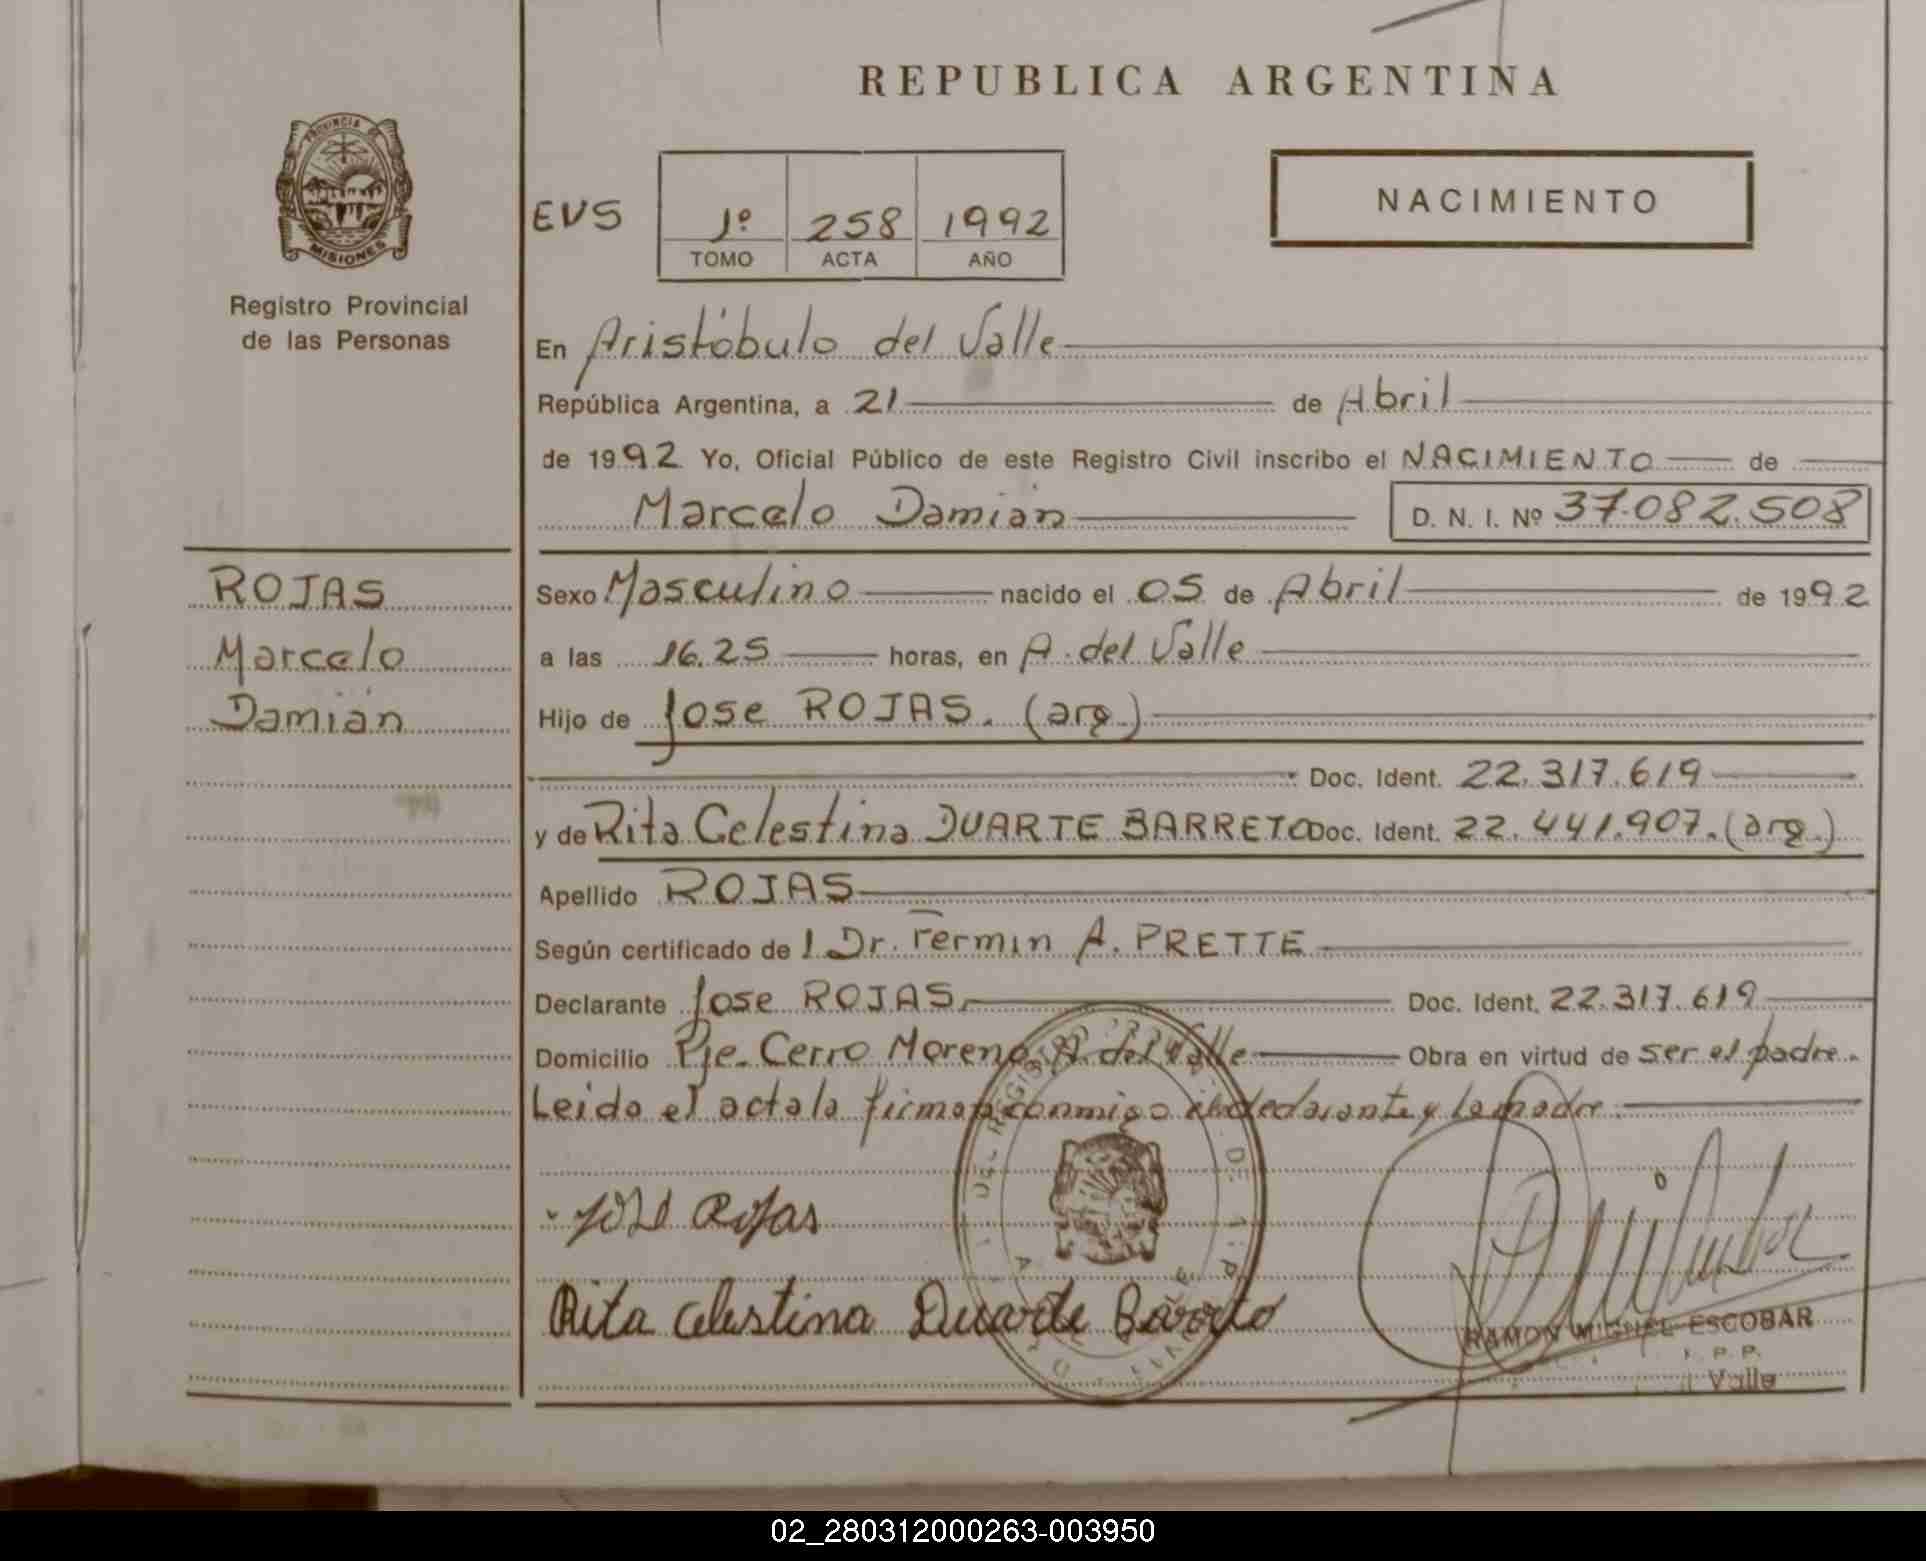 REPUBLICA ARGENTINA
PROVINCIA DE
MISIONES
Registro Provincial
de las Personas
EVS
1º 258 1992
TOMO ACTA AÑO
NACIMIENTO
En Aristóbulo del Valle
República Argentina, a 21 de Abril
de 1992 Yo, Oficial Público de este Registro Civil inscribo el NACIMIENTO de
Marcelo Damián D. N. I. Nº 37.082.508
ROJAS
Marcelo
Damián
Sexo Masculino nacido el 05 de Abril de 1992
a las 16.25 horas, en A. del Valle
Hijo de Jose ROJAS. (arg.)
Doc. Ident. 22.317.619
y de Rita Celestina DUARTE BARRETO Doc. Ident. 22.441.907. (arg.)
Apellido ROJAS
Según certificado de l Dr. Fermin A. PRETTE
Declarante Jose ROJAS. Doc. Ident. 22.317.619
Domicilio Pje. Cerro Moreno A. del Valle Obra en virtud de ser el padre.
Leida el acta la firman conmigo el declarante y la madre.
José Rojas
Rita Celestina Duarte Barreto
RAMON MIGUEL ESCOBAR
Valle
02_280312000263-003950